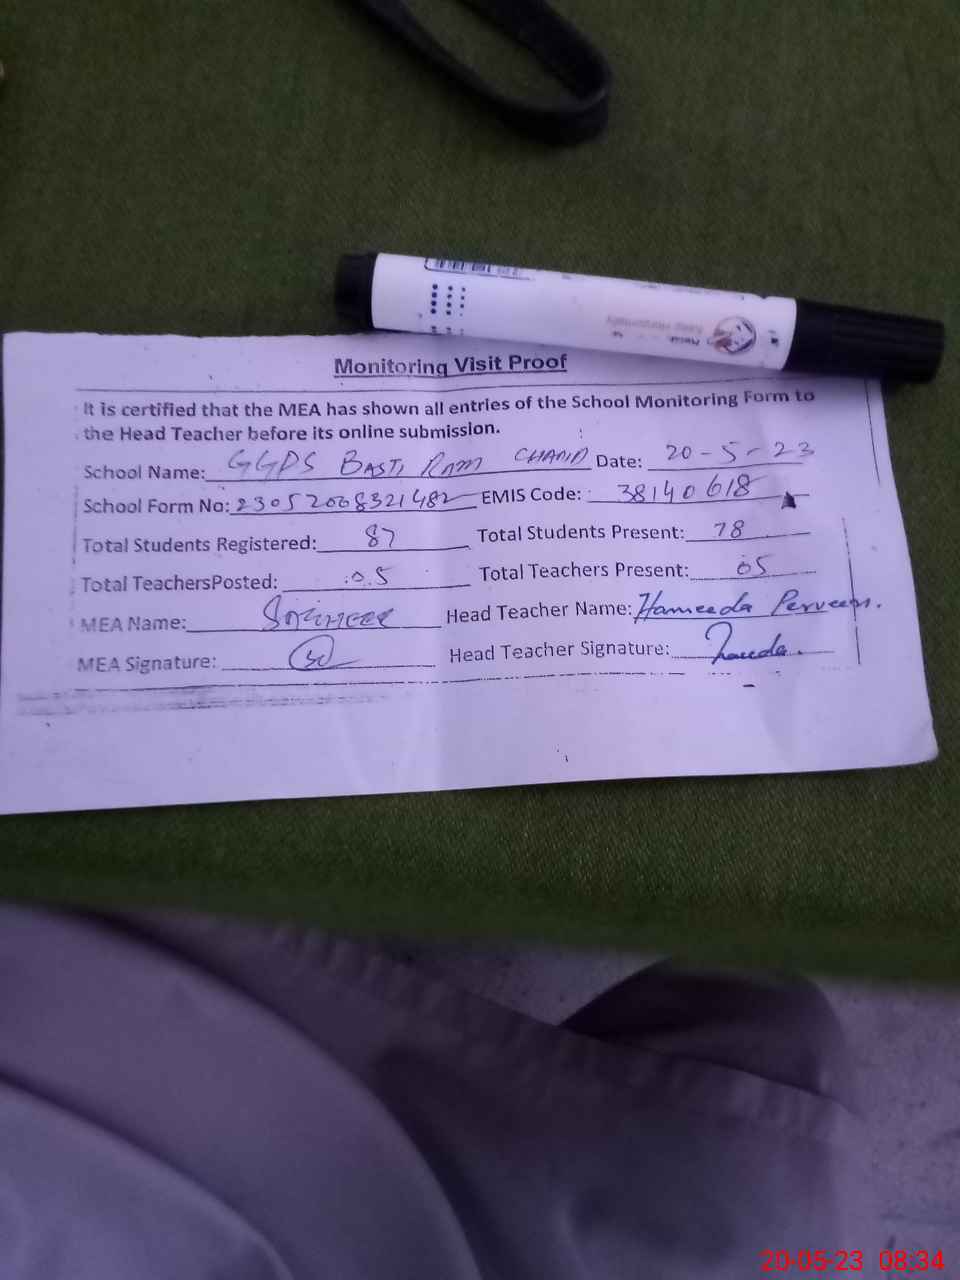 Monitoring Visit Proof
It is certified that the MEA has shown all entries of the School Monitoring Form to
the Head Teacher before its online submission.
School Name: GGPS BASTI RAM CHAND Date: 20-5-23
School Form No: 23052068321482 EMIS Code: 38140618
Total Students Registered: 87 Total Students Present: 78
Total TeachersPosted: 05 Total Teachers Present: 05
MEA Name: Head Teacher Name: Hameeda Perveen.
MEA Signature: Head Teacher Signature:
20-05-23 08:34